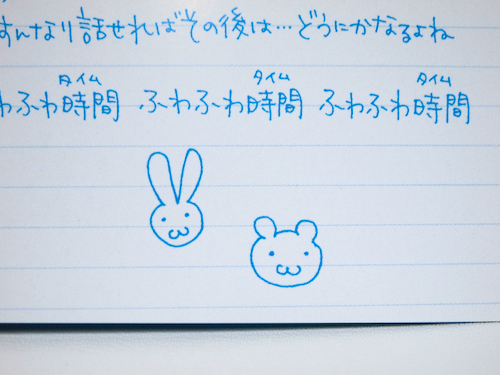 すんなり話せればその後は…どうにかなるよね
タイム タイム タイム
わふわ時間 ふわふわ時間 ふわふわ時間